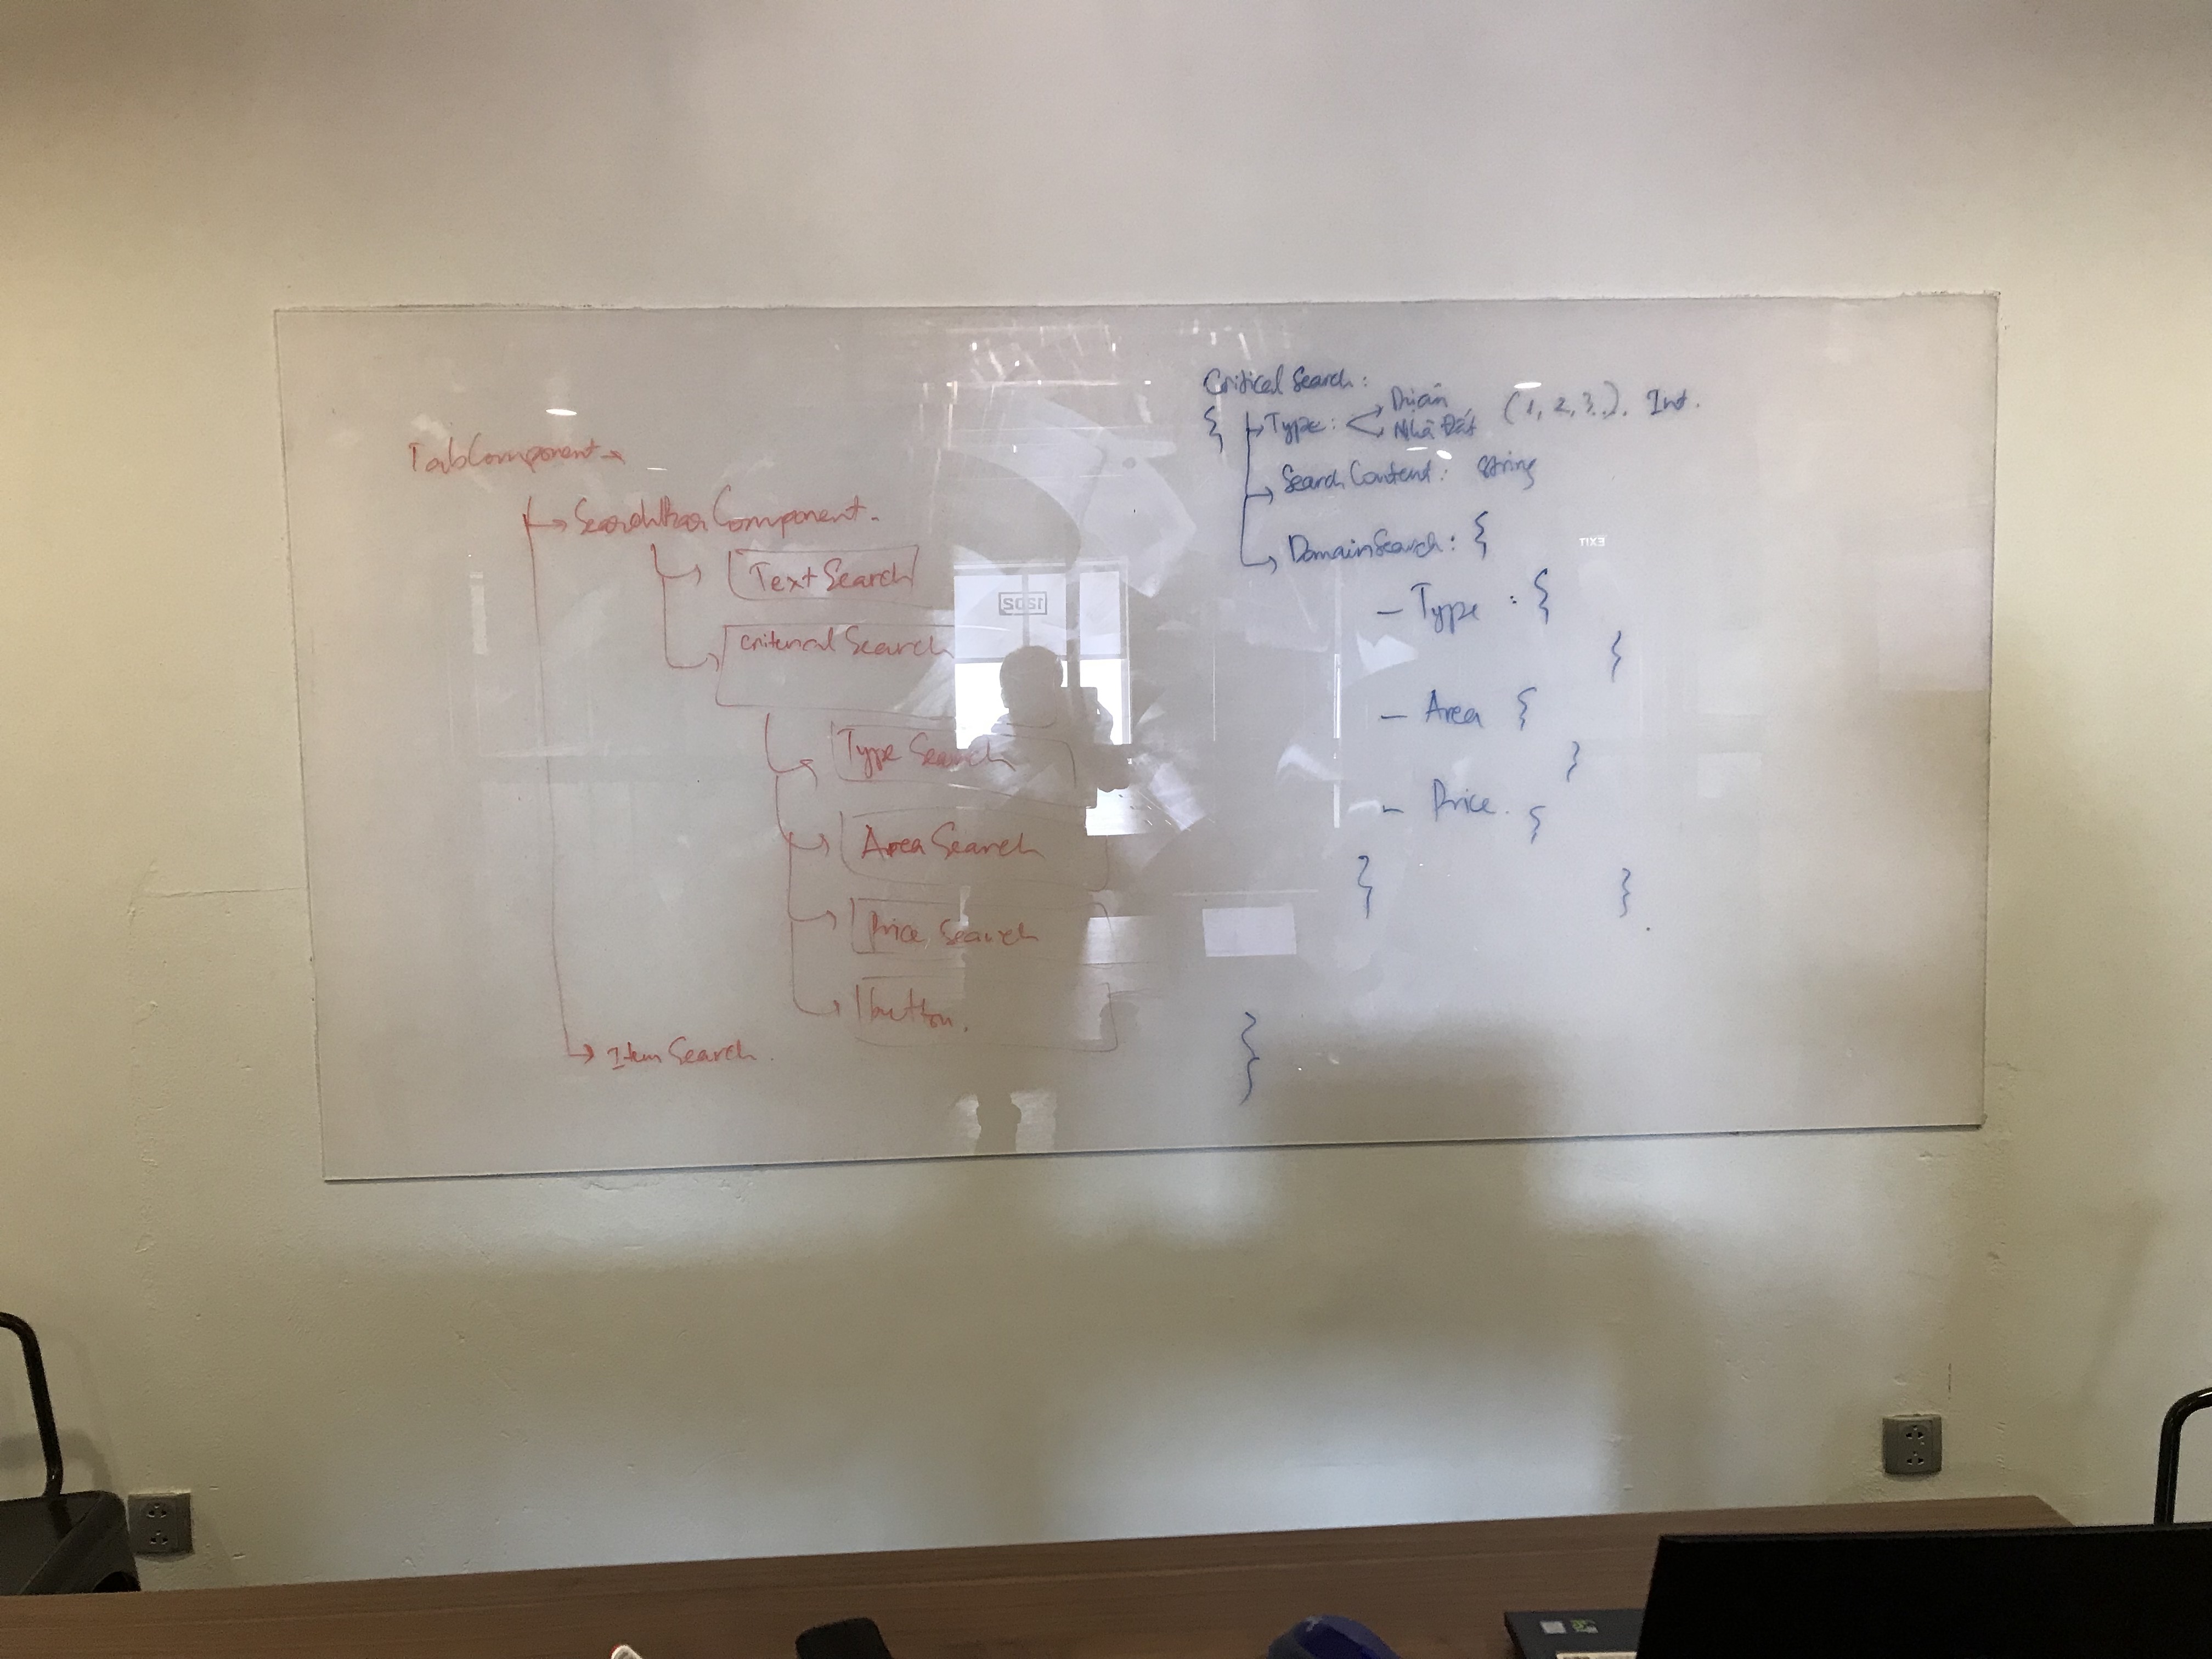 TabComponent
SearchBarComponent.
Text Search
criterial Search
Type Search
Area Search
Price Search
button.
Item Search.
Critical Search:
{ Type: Dự án
Nhà Đất (1, 2, 3..). Int.
Search Content: String
DomainSearch: {
- Type : {
}
- Area {
}
- Price. {
}
}
}
EXIT